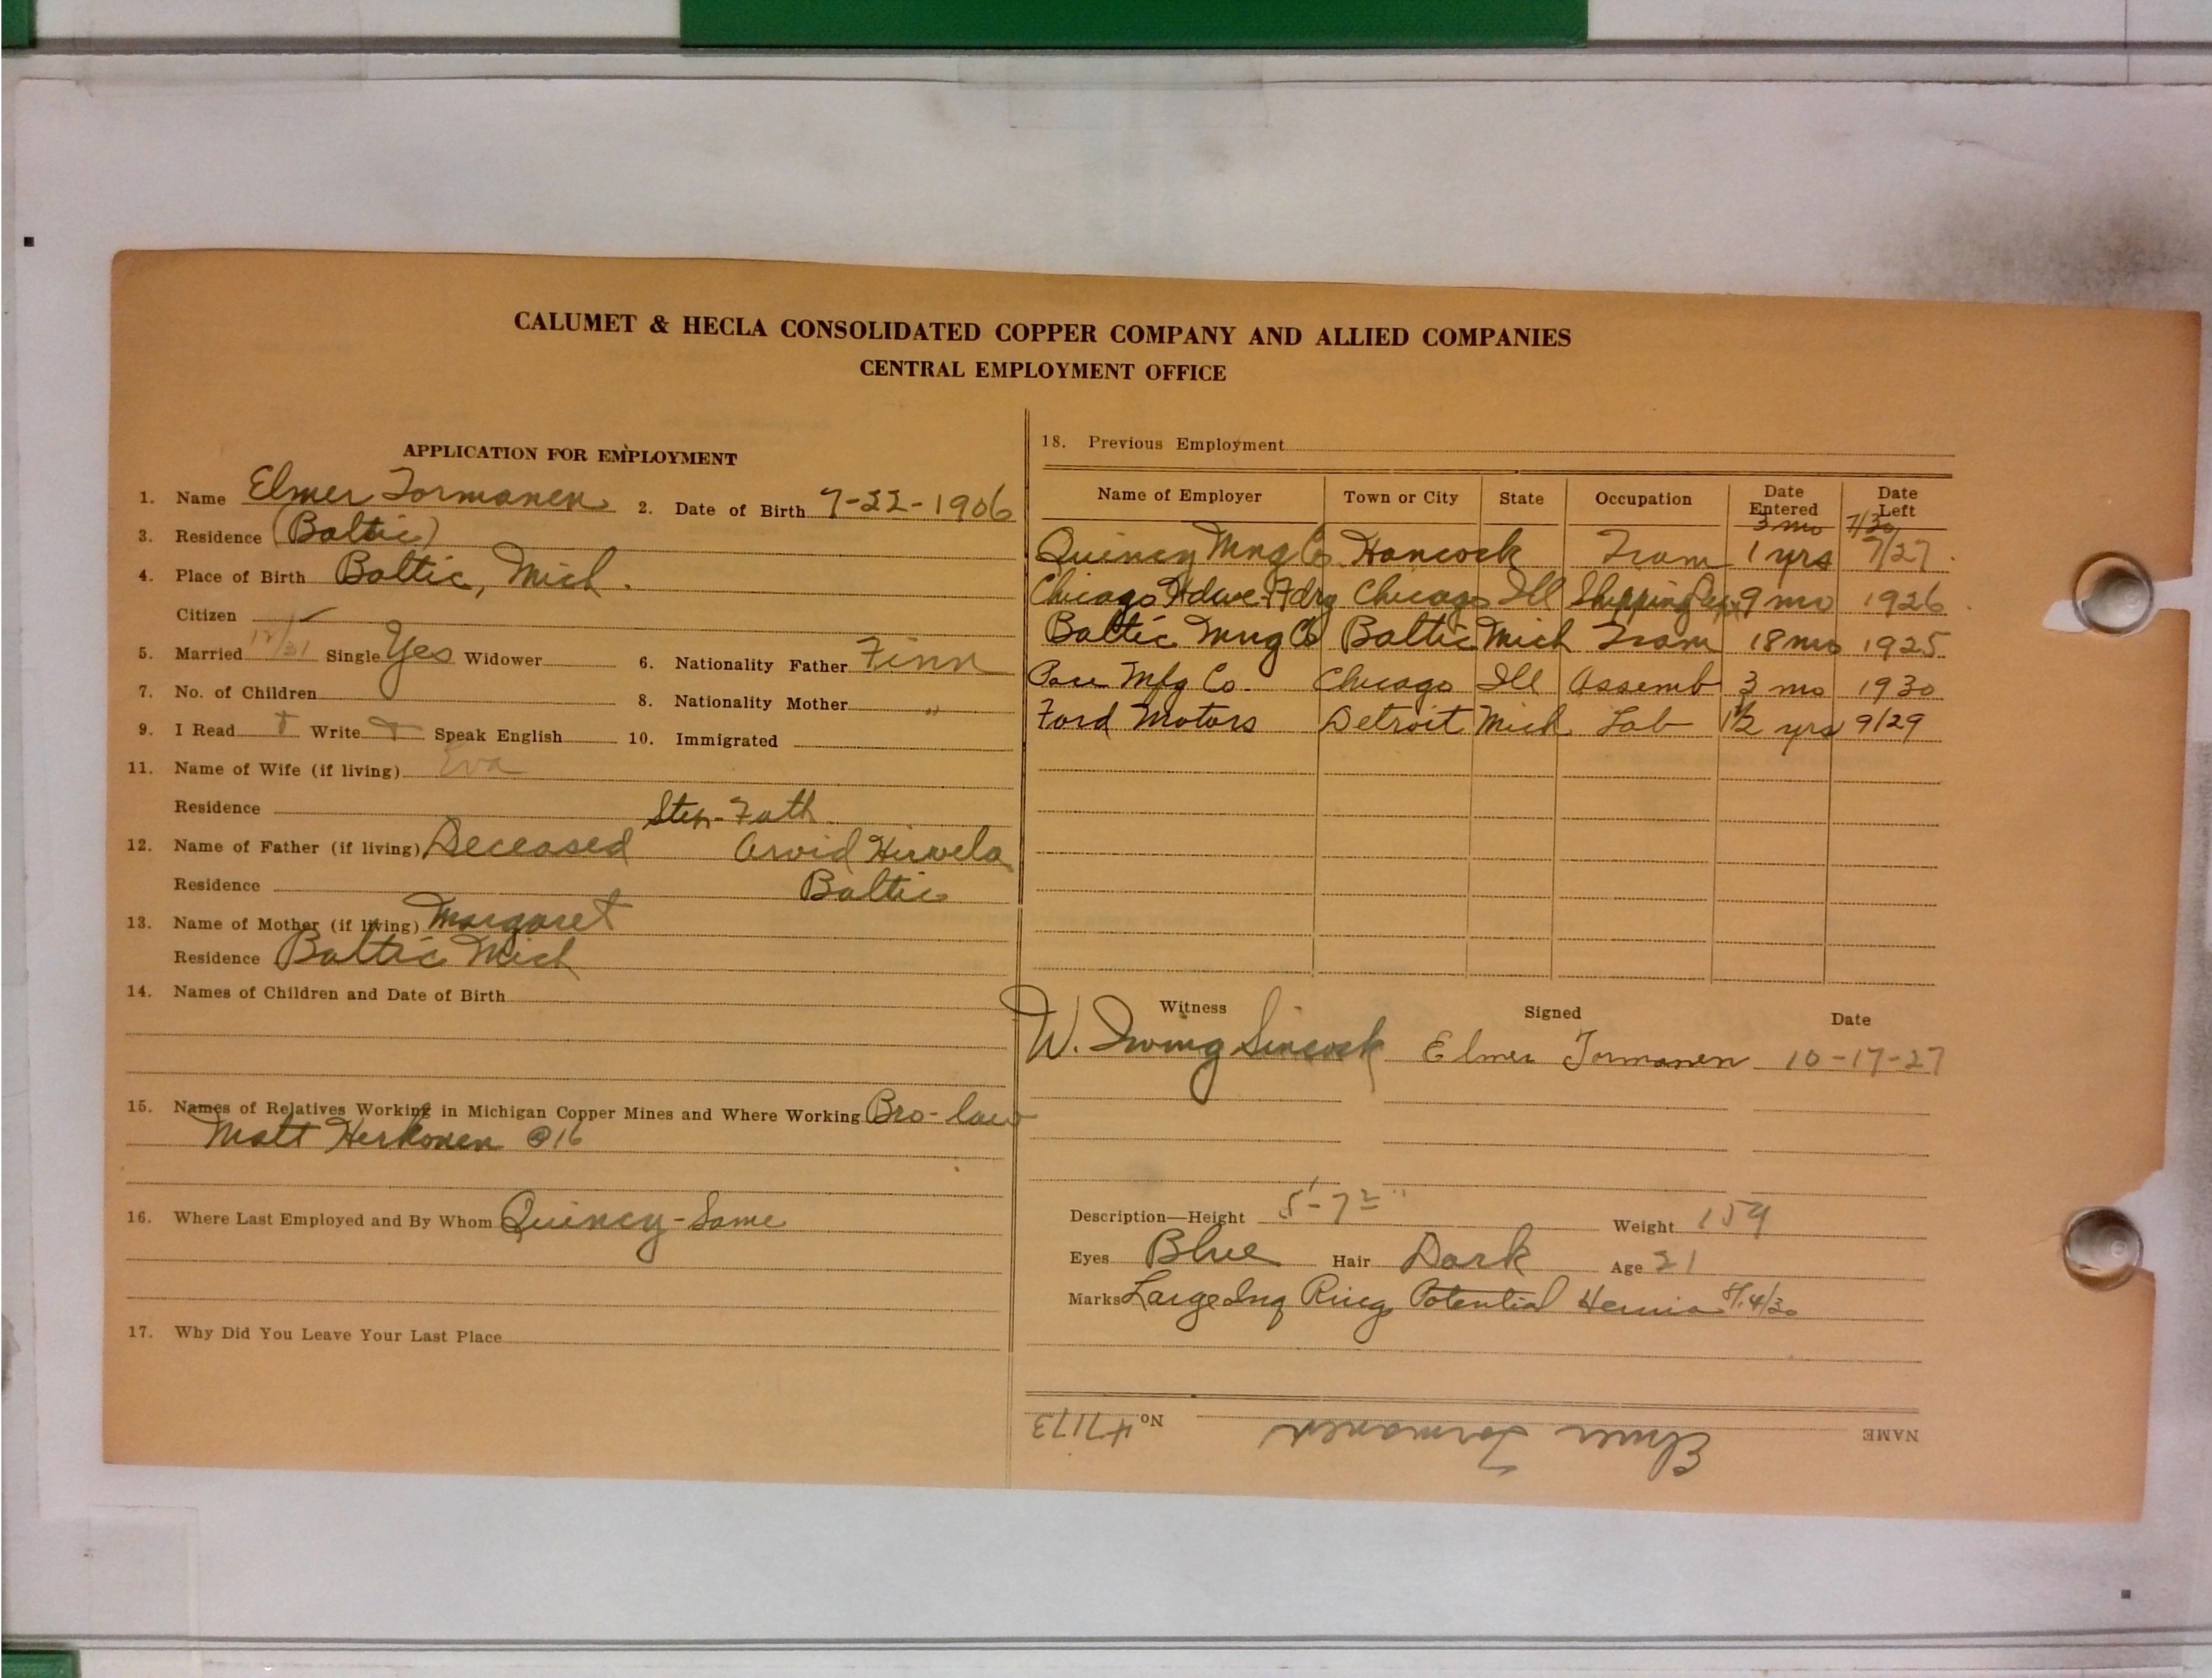 CALUMET & HECLA CONSOLIDATED COPPER COMPANY AND ALLIED COMPANIES
CENTRAL EMPLOYMENT OFFICE
APPLICATION FOR EMPLOYMENT
1. Name Elmer Tormanen 2. Date of Birth 7-22-1906
3. Residence (Baltic)
4. Place of Birth Baltic, Mich.
Citizen ✓
5. Married 12/31 Single Yes Widower 6. Nationality Father Finn
7. No. of Children 8. Nationality Mother "
9. I Read Write Speak English 10. Immigrated
11. Name of Wife (if living) Eva
Residence
Step-Fath.
12. Name of Father (if living) Deceased Arvid Hirvela
Residence Baltic
13. Name of Mother (if living) Margaret
Residence Baltic Mich
14. Names of Children and Date of Birth
15. Names of Relatives Working in Michigan Copper Mines and Where Working Bro-law
Matt Herkonen @16
16. Where Last Employed and By Whom Quincy-Same
17. Why Did You Leave Your Last Place
18. Previous Employment
Name of Employer Town or City State Occupation Date Entered Date Left
3 mo 7/30
Quincy Mng Co. Hancock Tram 1 yrs 7/27
Chicago Hdwe Fdry Chicago Ill Shipping 9 mo 1926
Baltic Mng Co Baltic Mich Tram 18 mo 1925
Mfg Co. Chicago Ill Assemb 3 mo 1930
Ford Motors Detroit Mich Lab 1½ yrs 9/29
Witness Signed Date
W. Irving Sincock Elmer Tormanen 10-17-27
Description—Height 5'-7½" Weight 159
Eyes Blue Hair Dark Age 21
Marks Large Ing Ring Potential Hernia 8/14/30
NAME Elmer Tormanen No. 47173